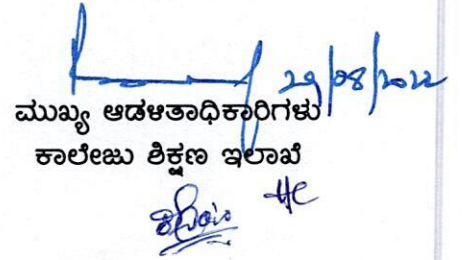 29/08/2022
ಮುಖ್ಯ ಆಡಳಿತಾಧಿಕಾರಿಗಳು
ಕಾಲೇಜು ಶಿಕ್ಷಣ ಇಲಾಖೆ